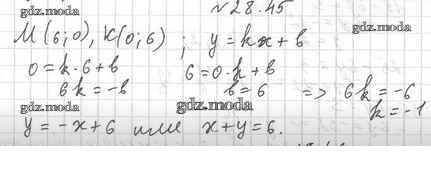 gdz.moda
№28.45
gdz.moda
M(6;0), K(0;6) ; y = kx + b
0 = k·6 + b 6 = 0·k + b
6k = -b b = 6 => 6k = -6
gdz.moda gdz.moda gdz.moda
k = -1
y = -x + 6 или x + y = 6.